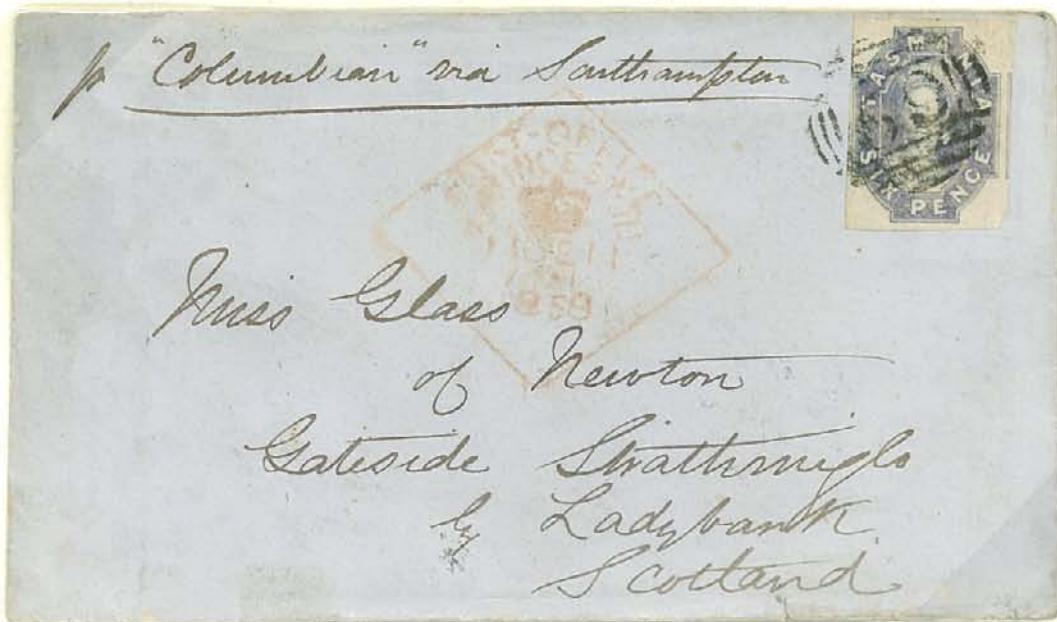 p "Columbian" via Southampton
TAS A
SIX PENCE
POST-OFFICE
Miss Glass
of Newton
Gateside Strathmiglo
by Ladybank
Scotland